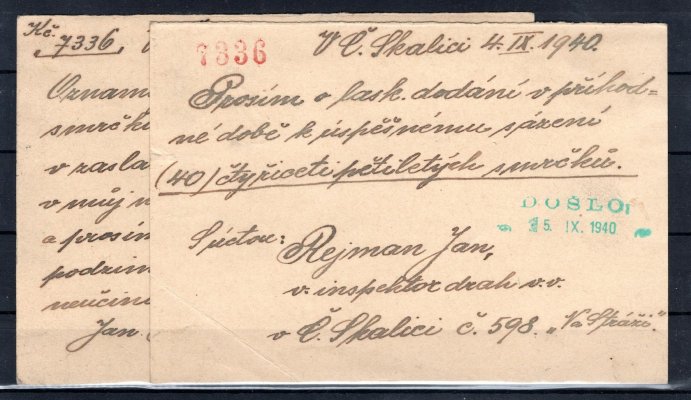 Kč.
7336,
Oznam
smrčk
v zasla
v můj
a prosím
podzim
neučin
Jan
7336
V Č. Skalici 4. IX. 1940.
Prosím o lask. dodání v příhod=
né době k úspěšnému sázení
(40) čtyřiceti pětiletých smrčků.
DOŠLO:
5. IX. 1940
S úctou:
Rejman Jan,
v. inspektor drah v.v.
v Č. Skalici č. 598. „Na Stráži."